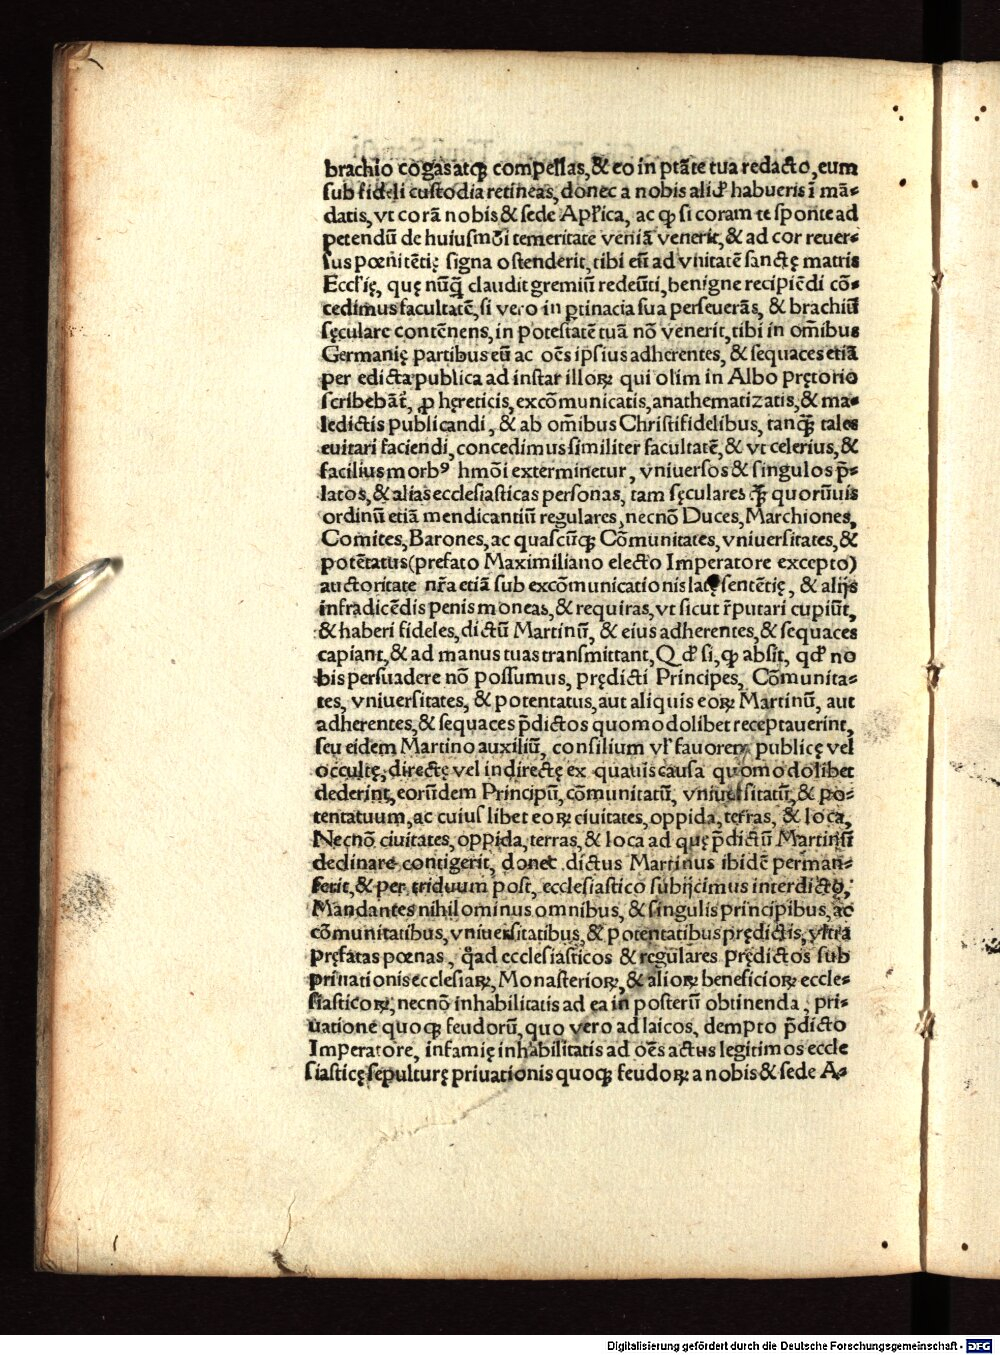 brachio cogas atqꝫ compellas, & eo in ptāte tua redacto, eum
sub fideli custodia retineas, donec a nobis aliđ habueris ī mā⸗
datis, vt corā nobis & sede Apłica, ac ꝙ si coram te sponte ad
petendū de huiusmōi temeritate veniā venerit, & ad cor reuer⸗
sus pœnitētię signa ostenderit, tibi eū ad vnitatē sanctę matris
Eccłię, quę nūꝗ̄ claudit gremiū redeūti, benigne recipiēdi cō⸗
cedimus facultatē, si vero in ꝑtinacia sua perseuerās, & brachiū
sęculare contēnens, in potestatē tuā nō venerit, tibi in om̄ibus
Germanię partibus eū ac oēs ipsius adherentes, & sequaces etiā
per edicta publica ad instar illoꝝ qui olim in Albo pretorio
scribebāt̄, ꝓ hęreticis, excōmunicatis, anathematizatis, & ma⸗
ledictis publicandi, & ab om̄ibus Christifidelibus, tanꝗ̄ tales
euitari faciendi, concedimus similiter facultatē, & vt celerius, &
facilius morbꝰ hmōi exterminetur, vniuersos & singulos p̄⸗
latos, & alias ecclesiasticas personas, tam sęculares ꝗ̄ quorūuis
ordinū etiā mendicantiū regulares, necnō Duces, Marchiones,
Comites, Barones, ac quascūqꝫ Cōmunitates, vniuersitates, &
potētatus (prefato Maximiliano electo Imperatore excepto)
auctoritate nr̄a etiā sub excōmunicationis latę sentētię, & alijs
infradicēdis penis moneas, & requiras, vt sicut r̄putari cupiūt,
& haberi fideles, dictū Martinū, & eius adherentes, & sequaces
capiant, & ad manus tuas transmittant, Qđ si, ꝙ absit, qđ no
bis persuadere nō possumus, prędicti Principes, Cōmunita⸗
tes, vniuersitates, & potentatus, aut aliquis eoꝝ Martinū, aut
adherentes, & sequaces p̄dictos quomodolibet receptauerint,
seu eidem Martino auxiliū, consilium vł fauorem publicę vel
occultę, directę vel indirectę ex quauis causa quomodolibet
dederint, eorūdem Principū, cōmunitatū, vniuersitatū, & po⸗
tentatuum, ac cuius libet eoꝝ ciuitates, oppida, terras, & loca,
Necnō ciuitates, oppida, terras, & loca ad quę p̄dictū Martinū
declinare contigerit, donec dictus Martinus ibidē perman⸗
serit, & per triduum post, ecclesiastico subijcimus interdicto,
Mandantes nihilominus omnibus, & singulis principibus, ac
cōmunitatibus, vniuersitatibus, & potentatibus prędictis, vltra
pręfatas pœnas, q̊ad ecclesiasticos & regulares prędictos sub
priuationis ecclesiaꝝ, Monasterioꝝ, & alioꝝ beneficioꝝ eccle⸗
siasticoꝝ, necnō inhabilitatis ad ea in posterū obtinenda, pri⸗
uatione quoqꝫ feudorū, quo vero ad laicos, dempto p̄dicto
Imperatore, infamię inhabilitatis ad oēs actus legitimos eccle
siasticę sepulturę priuationis quoqꝫ feudoꝝ a nobis & sede A⸗
Digitalisierung gefördert durch die Deutsche Forschungsgemeinschaft - DFG